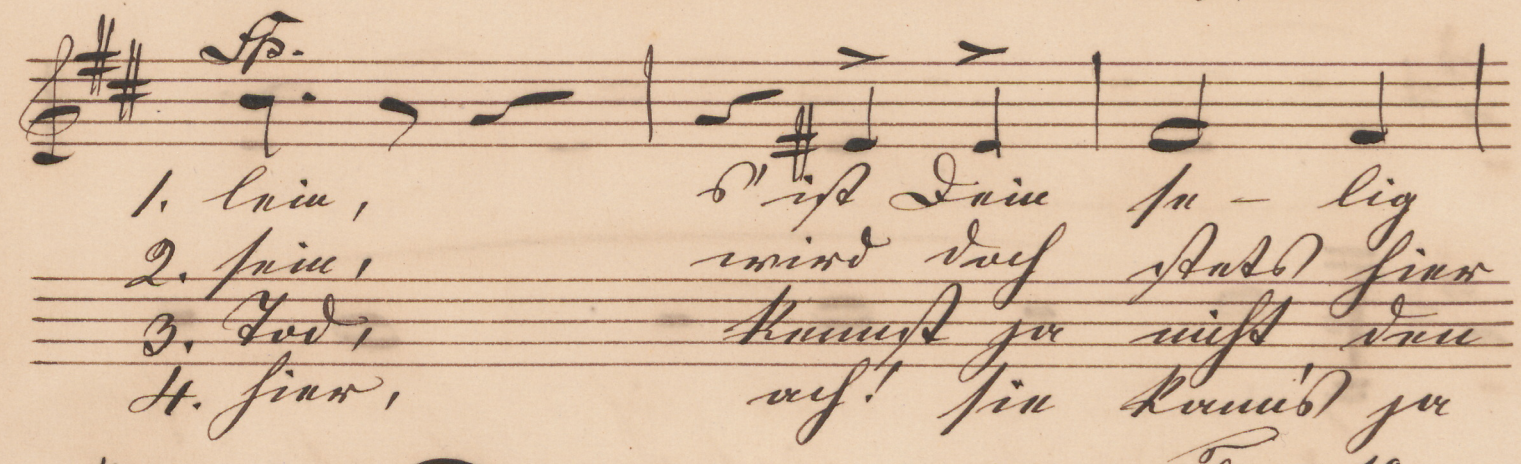 fp.
1. lein, s' ist Dein se - lig
2. sein, wird doch stets hier
3. Tod, kennst ja nicht den
4. hier, ach! sie kann's ja